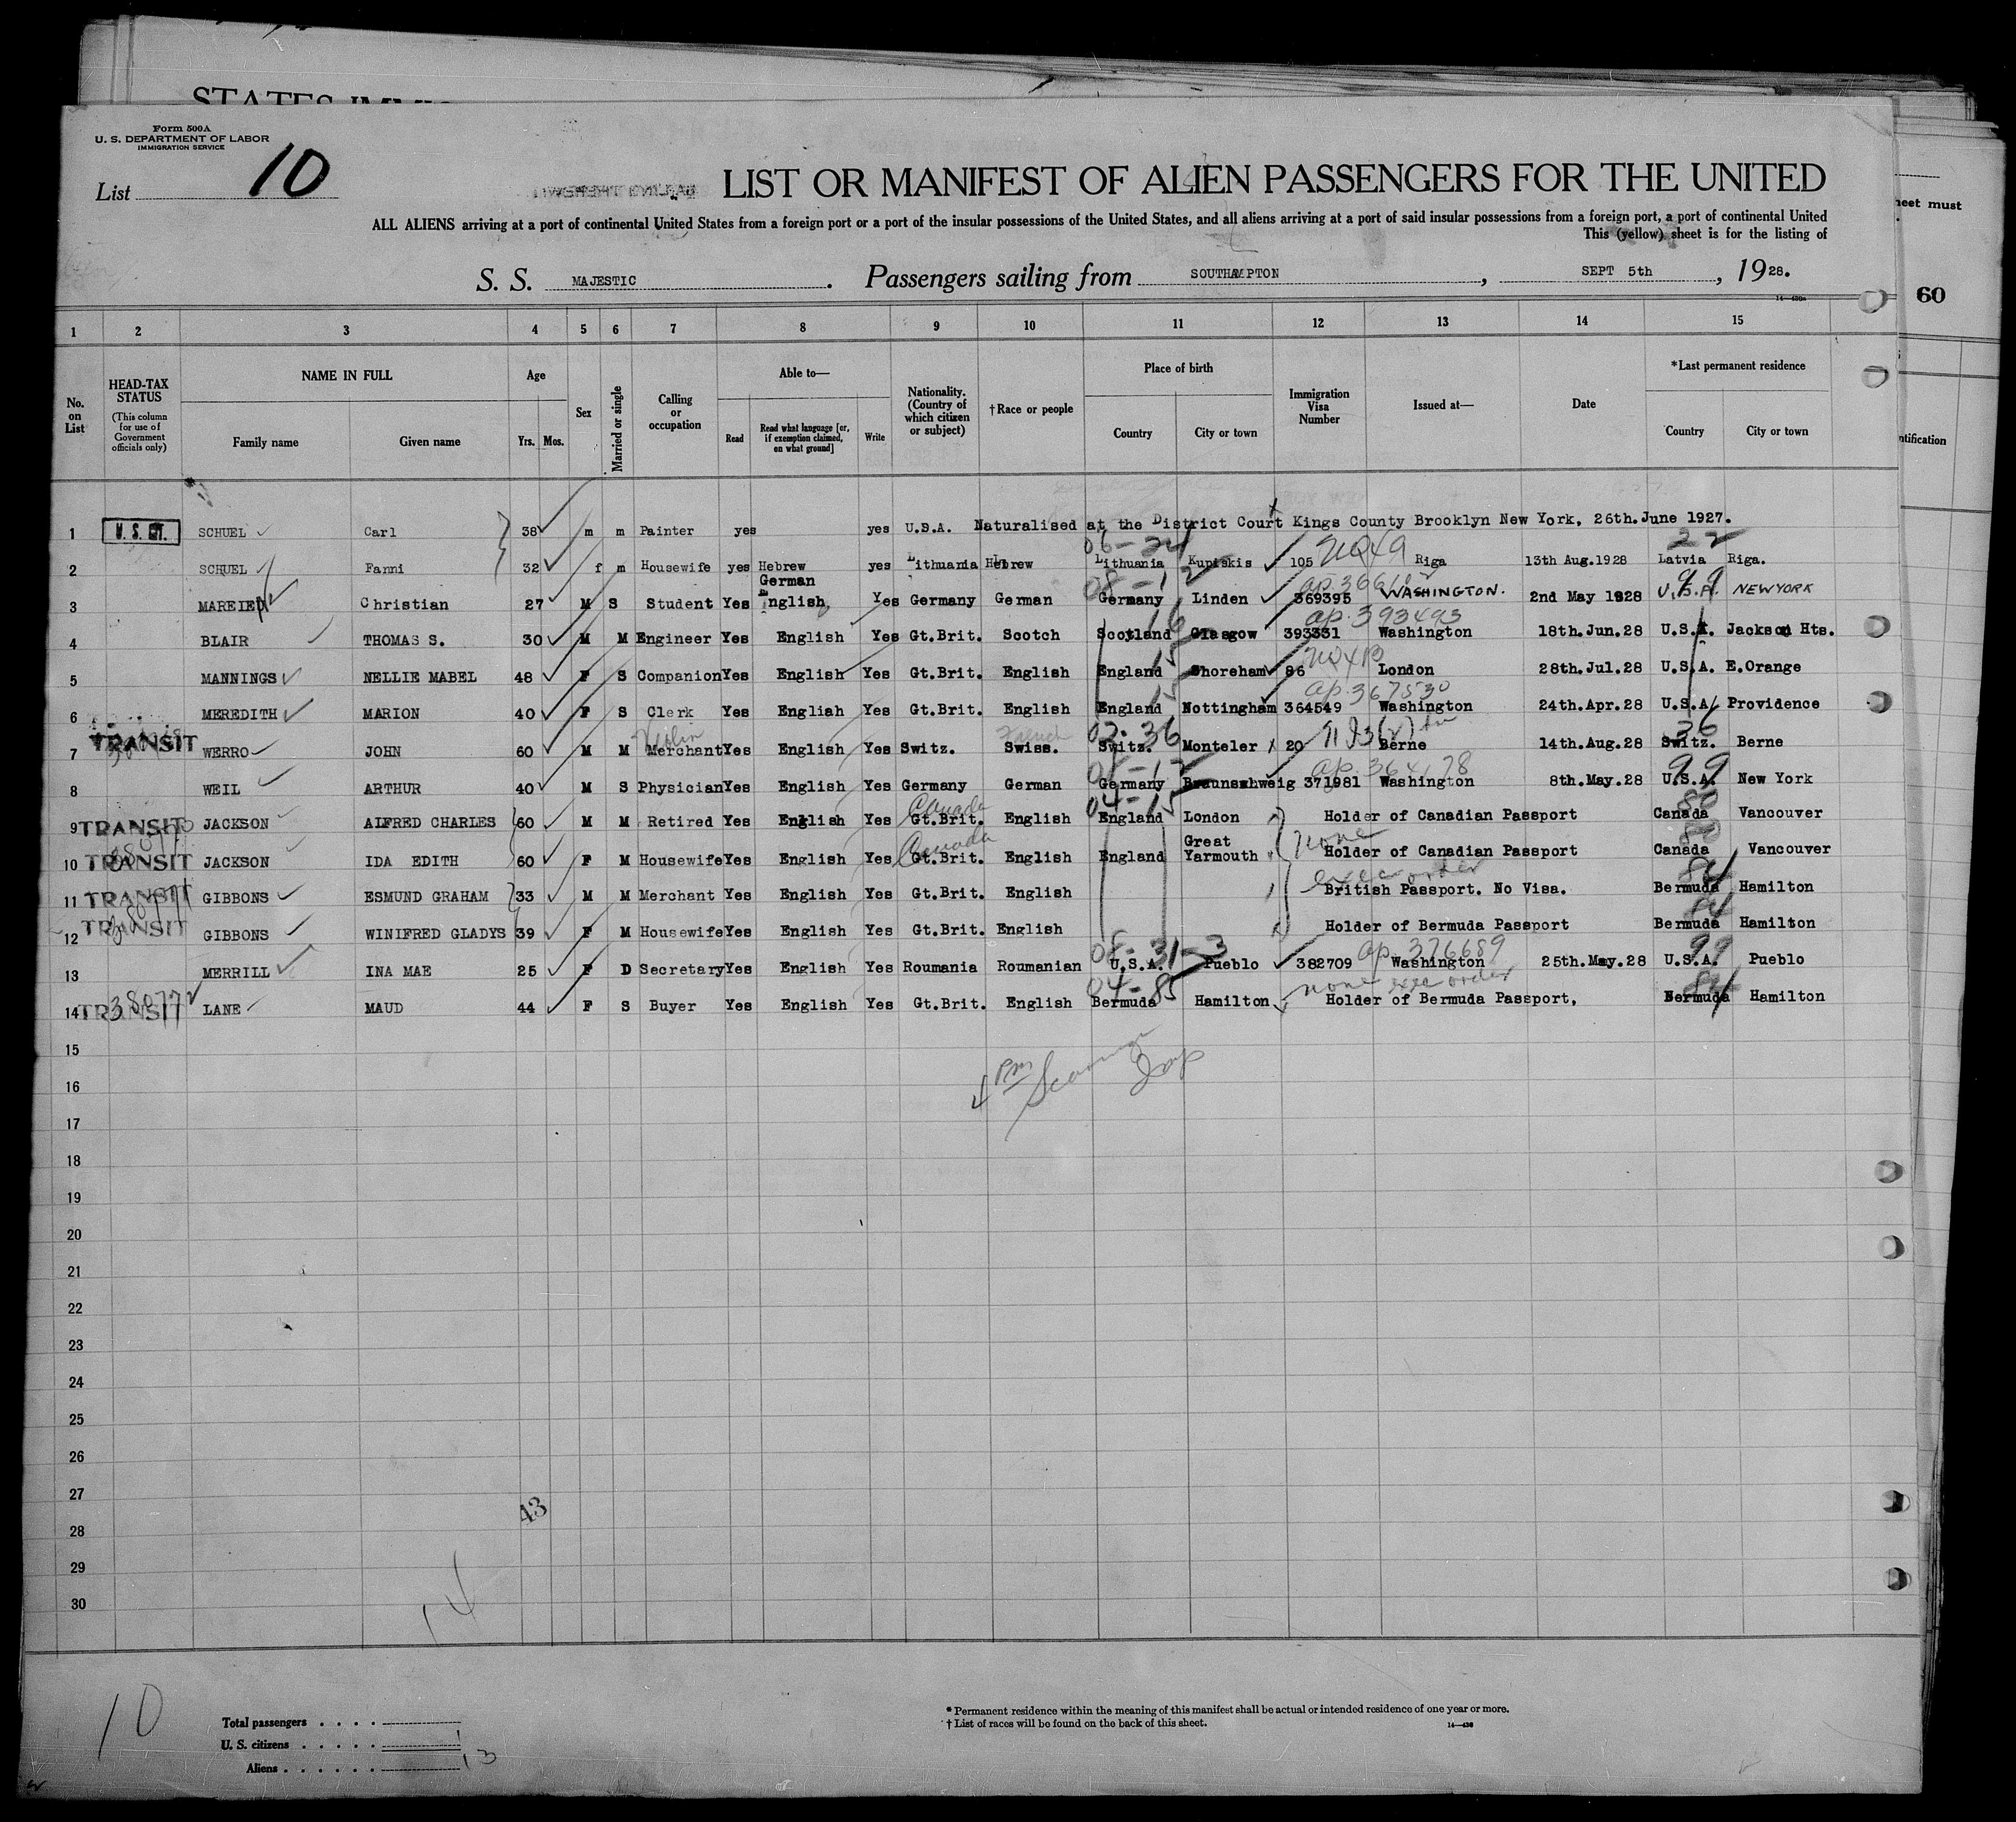 STATES IMMI
Form 500A
U. S. DEPARTMENT OF LABOR
IMMIGRATION SERVICE
List 10
LIST OR MANIFEST OF ALIEN PASSENGERS FOR THE UNITED
ALL ALIENS arriving at a port of continental United States from a foreign port or a port of the insular possessions of the United States, and all aliens arriving at a port of said insular possessions from a foreign port, a port of continental United
This (yellow) sheet is for the listing of
heet must
S. S. MAJESTIC. Passengers sailing from SOUTHAMPTON, SEPT 5th, 1928.
60
14—430a
1 2 3 4 5 6 7 8 9 10 11 12 13 14 15
No. on List
HEAD-TAX STATUS
(This column for use of Government officials only)
NAME IN FULL
Family name Given name
Age
Yrs. Mos.
Sex
Married or single
Calling or occupation
Able to—
Read Read what language [or, if exemption claimed, on what ground] Write
Nationality. (Country of which citizen or subject)
† Race or people
Place of birth
Country City or town
Immigration Visa Number
Issued at—
Date
*Last permanent residence
Country City or town
ntification
1 U. S. CIT. SCHUEL Carl 38 m m Painter yes yes U.S.A. Naturalised at the District Court Kings County Brooklyn New York, 26th. June 1927.
06-24 NQ49 22
2 SCHUEL Fanni 32 f m Housewife yes Hebrew yes Lithuania Hebrew Lithuania Kupiskis 105 Riga 13th Aug.1928 Latvia Riga.
German
3 MAREIER Christian 27 M S Student Yes English Yes Germany German Germany Linden 369395 WASHINGTON. 2nd May 1928 U.S.A. NEWYORK
99
16 ap. 393493
4 BLAIR THOMAS S. 30 M M Engineer Yes English Yes Gt.Brit. Scotch Scotland Glasgow 393331 Washington 18th.Jun.28 U.S.A. Jackson Hts.
15
5 MANNINGS NELLIE MABEL 48 F S Companion Yes English Yes Gt.Brit. English England Shoreham 86 London 28th.Jul.28 U.S.A. E.Orange
15 ap. 367530
6 MEREDITH MARION 40 F S Clerk Yes English Yes Gt.Brit. English England Nottingham 364549 Washington 24th.Apr.28 U.S.A. Providence
French 36 36
7 TRANSIT WERRO JOHN 60 M M Merchant Yes English Yes Switz. Swiss. Switz. Monteler 20 Berne 14th.Aug.28 Switz. Berne
99
8 WEIL ARTHUR 40 M S Physician Yes English Yes Germany German Germany Braunschweig 371981 Washington 8th.May.28 U.S.A. New York
Canada 04-15 80
9 TRANSIT JACKSON ALFRED CHARLES 60 M M Retired Yes English Yes Gt.Brit. English England London Holder of Canadian Passport Canada Vancouver
Canada none 80
10 TRANSIT JACKSON IDA EDITH 60 F M Housewife Yes English Yes Gt.Brit. English England Great Yarmouth Holder of Canadian Passport Canada Vancouver
exec order 84
11 TRANSIT GIBBONS ESMUND GRAHAM 33 M M Merchant Yes English Yes Gt.Brit. English British Passport. No Visa. Bermuda Hamilton
84
12 TRANSIT GIBBONS WINIFRED GLADYS 39 F M Housewife Yes English Yes Gt.Brit. English Holder of Bermuda Passport Bermuda Hamilton
08-31-3 ap. 376689 99
13 MERRILL INA MAE 25 F D Secretary Yes English Yes Roumania Roumanian U.S.A. Pueblo 382709 Washington 25th.May.28 U.S.A. Pueblo
04-85 none exec order 84
14 TRANSIT LANE MAUD 44 F S Buyer Yes English Yes Gt.Brit. English Bermuda Hamilton Holder of Bermuda Passport. Bermuda Hamilton
15
16
17
18
19
20
21
22
23
24
25
26
27
43
28
29
30
14
10
Total passengers
U. S. citizens 1
Aliens 13
* Permanent residence within the meaning of this manifest shall be actual or intended residence of one year or more.
† List of races will be found on the back of this sheet.
14—430